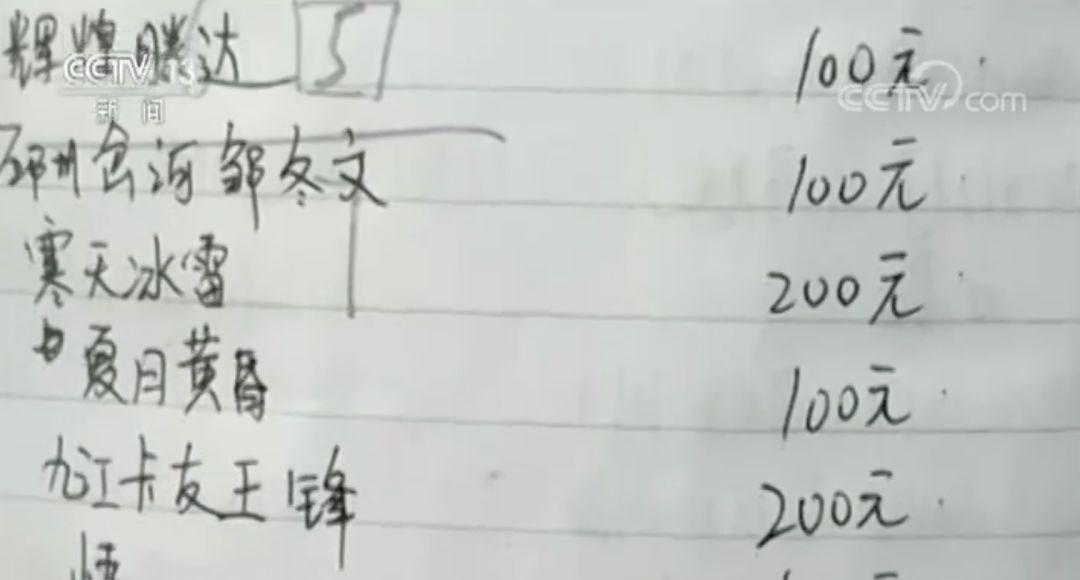 辉煌腾达 5 100元
CCTV 13 新闻
CCTV.com
邳州 河邹冬文 100元
寒天冰雷 200元
夏月黄昏 100元
九江卡友王锋 200元